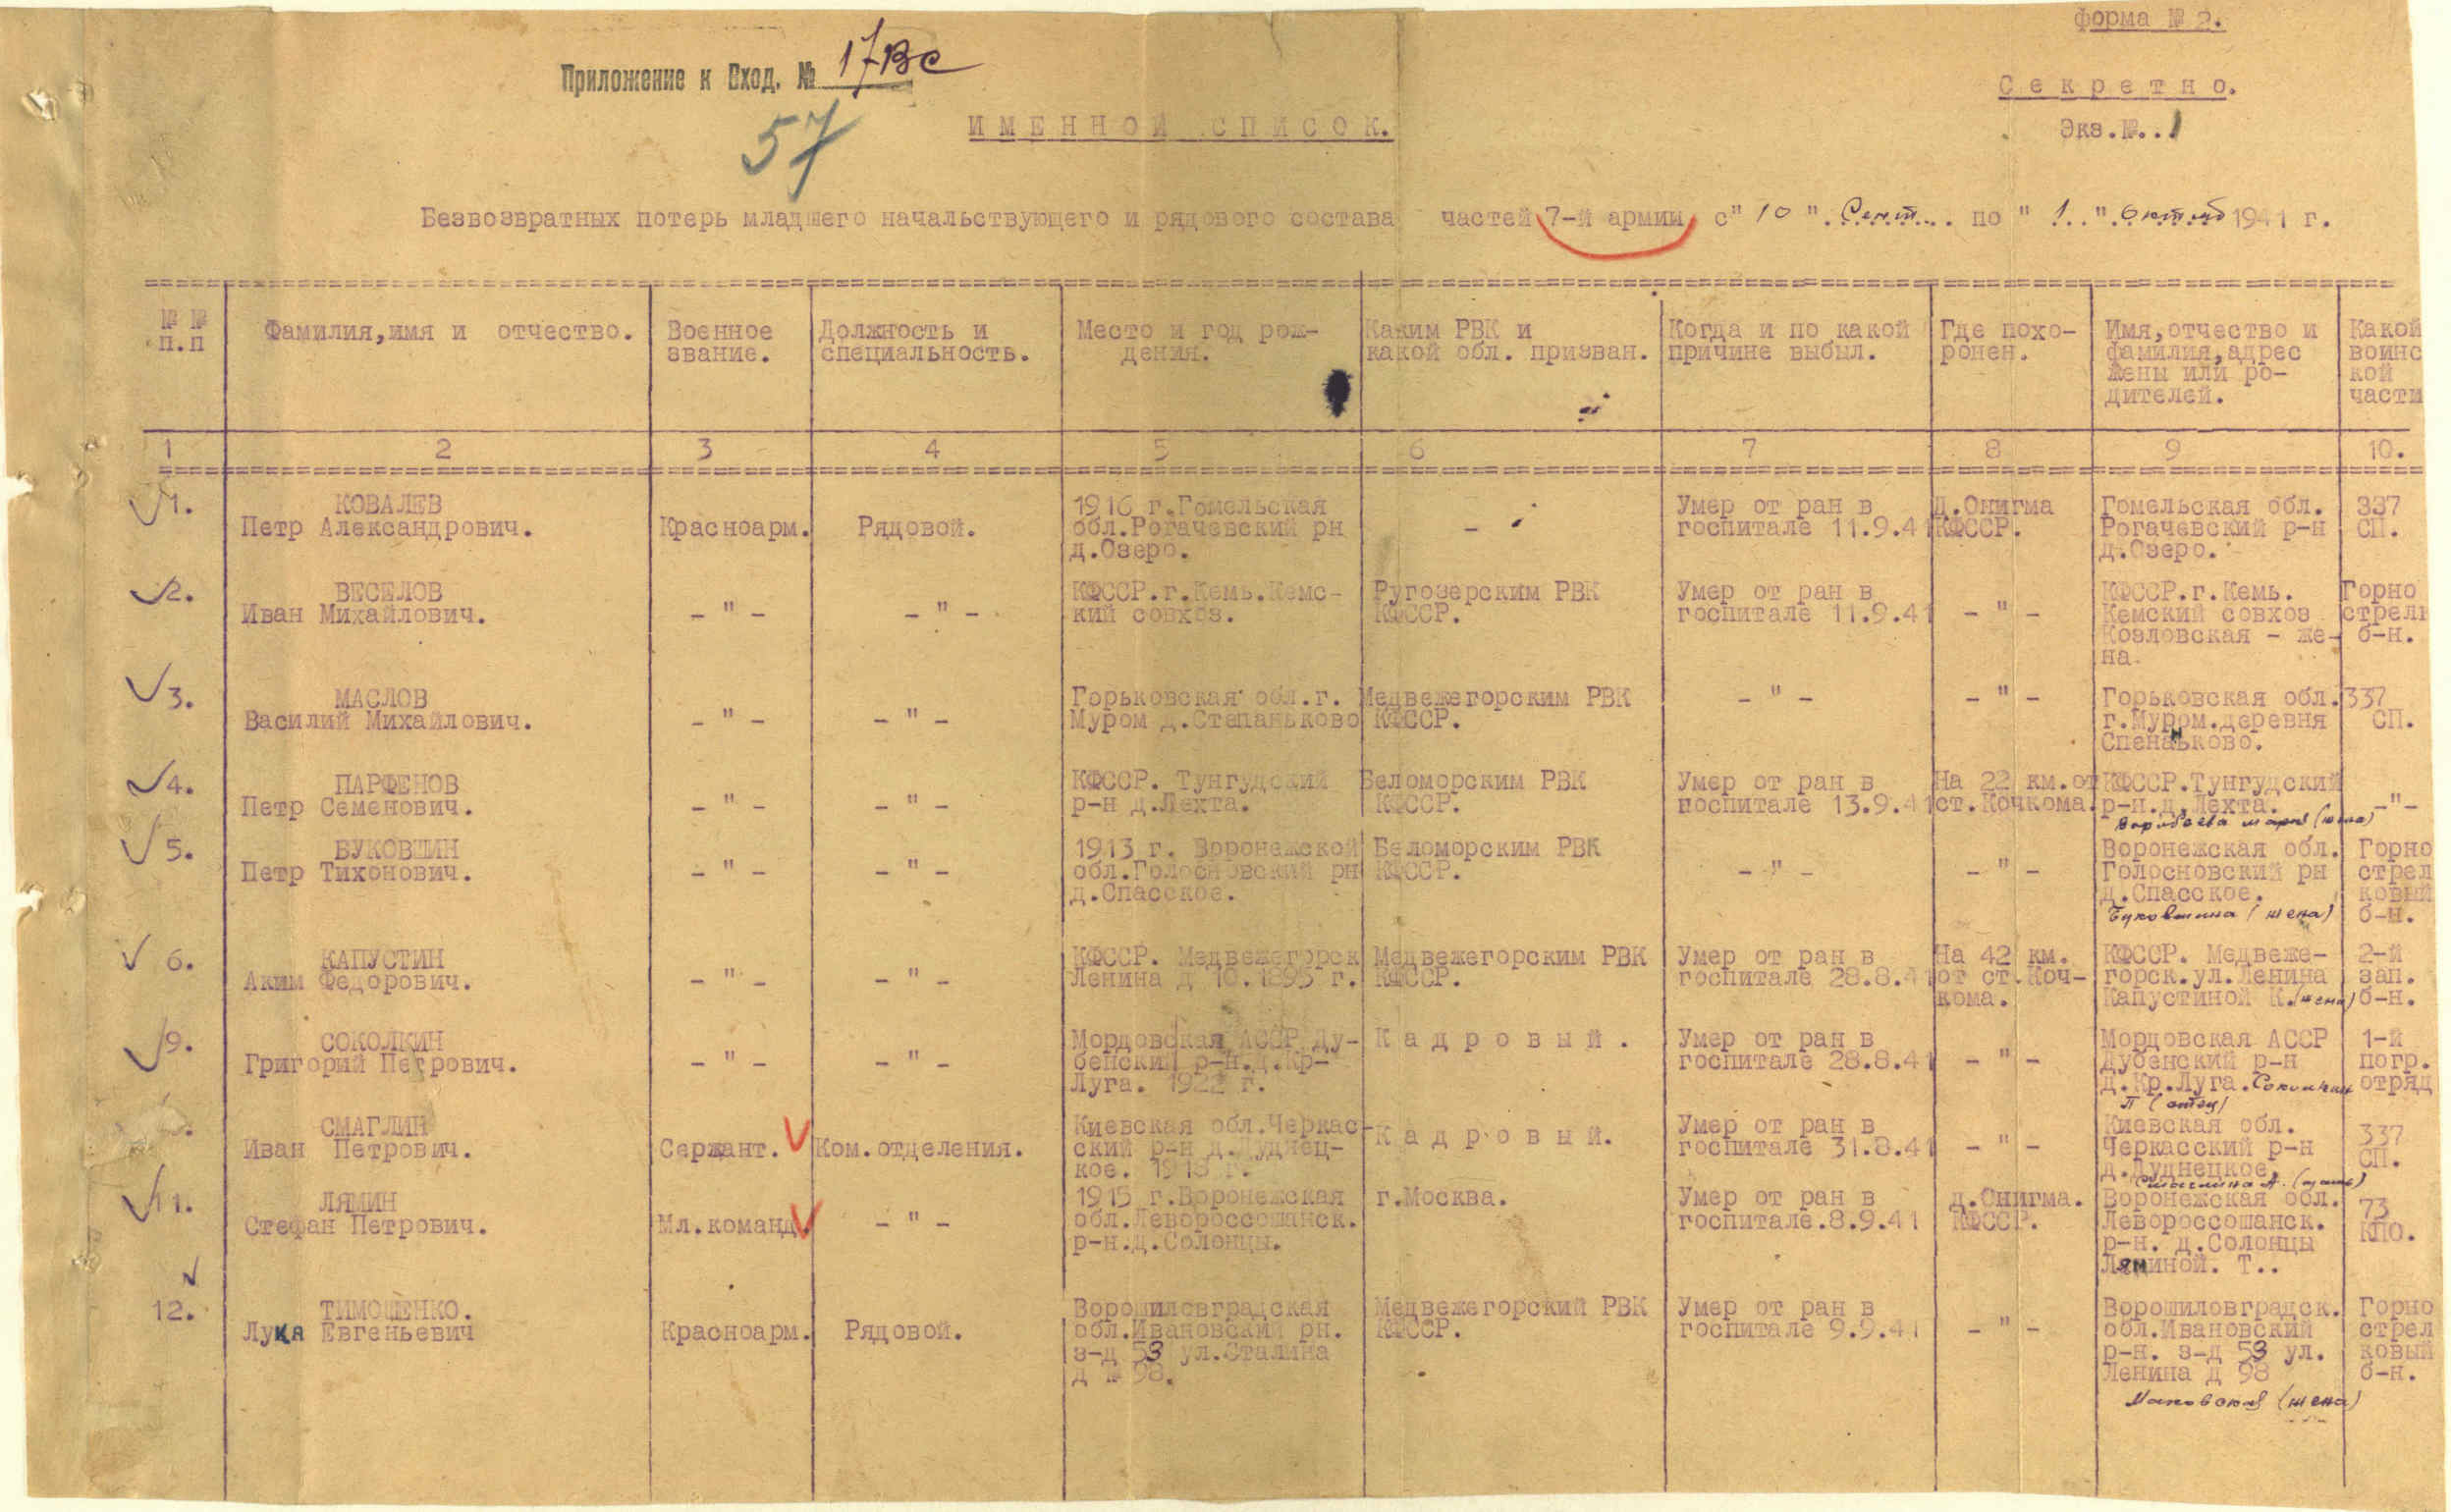 форма № 2.
Приложение к Вход. № 17вс
Секретно.
57
ИМЕННОЙ СПИСОК.
Экз.№..1
Безвозвратных потерь младшего начальствующего и рядового состава частей 7-й армии с" 10 ".Сент... по " 1.." Октяб 1941 г.
№ № п.п
Фамилия,имя и отчество.
Военное звание.
Должность и специальность.
Место и год рож-
дения.
Каким РВК и
какой обл. призван.
Когда и по какой
причине выбыл.
Где похо-
ронен.
Имя,отчество и
фамилия,адрес
жены или ро-
дителей.
Какой
воинс
кой
части
1 2 3 4 5 6 7 8 9 10.
1.
КОВАЛЕВ
Петр Александрович.
Красноарм.
Рядовой.
1916 г.Гомельская
обл.Рогачевский рн
д.Озеро.
-
Умер от ран в
госпитале 11.9.41
Д.Онигма
КФССР.
Гомельская обл.
Рогачевский р-н
д.Озеро.
337
СП.
2.
ВЕСЕЛОВ
Иван Михайлович.
- " -
- " -
КФССР.г.Кемь.Кемс-
кий совхоз.
Ругозерским РВК
КФССР.
Умер от ран в
госпитале 11.9.41
- " -
КФССР.г.Кемь.
Кемский совхоз
Козловская - же-
на.
Горно
стрелк
б-н.
3.
МАСЛОВ
Василий Михайлович.
- " -
- " -
Горьковская обл.г.
Муром д.Степаньково
Медвежегорским РВК
КФССР.
- " -
- " -
Горьковская обл.
г.Муром.деревня
Спеньково.
337
СП.
4.
ПАРФЕНОВ
Петр Семенович.
- " -
- " -
КФССР. Тунгудский
р-н д.Лехта.
Беломорским РВК
КФССР.
Умер от ран в
госпитале 13.9.41
На 22 км.от
ст.Кочкома.
КФССР.Тунгудский
р-н.д.Лехта.
(жена)
-"-
5.
БУКОВШИН
Петр Тихонович.
- " -
- " -
1913 г. Воронежской
обл.Голосновский рн
д.Спасское.
Беломорским РВК
КФССР.
- " -
- " -
Воронежская обл.
Голосновский рн
д.Спасское.
Буковшина (жена)
Горно
стрел
ковый
б-н.
6.
КАПУСТИН
Аким Федорович.
- " -
- " -
КФССР. Медвежегорск
Ленина д 10.1895 г.
Медвежегорским РВК
КФССР.
Умер от ран в
госпитале 28.8.41
На 42 км.
от ст.Коч-
кома.
КФССР. Медвеже-
горск.ул.Ленина
Капустиной К.(жена)
2-й
зап.
б-н.
9.
СОКОЛКИН
Григорий Петрович.
- " -
- " -
Мордовская АССР Ду-
бенский р-н.д.Кр-
Луга. 1922 г.
Кадровый.
Умер от ран в
госпитале 28.8.41
- " -
Мордовская АССР
Дубенский р-н
д.Кр.Луга.Соколкин
П (отец)
1-й
погр.
отряд
СМАГЛИН
Иван Петрович.
Сержант.
Ком.отделения.
Киевская обл.Черкас-
ский р-н д.Дуднец-
кое. 1918 г.
Кадровый.
Умер от ран в
госпитале 31.8.41
- " -
Киевская обл.
Черкасский р-н
д.Дуднецкое.
Смаглина А. (мать)
337
СП.
11.
ЛЯМИН
Стефан Петрович.
Мл.команд.
- " -
1915 г.Воронежская
обл.Левороссошанск.
р-н.д.Солонцы.
г.Москва.
Умер от ран в
госпитале.8.9.41
д.Онигма.
КФССР.
Воронежская обл.
Левороссошанск.
р-н. д.Солонцы
Ляминой. Т..
73
КПО.
12.
ТИМОШЕНКО.
Лука Евгеньевич
Красноарм.
Рядовой.
Ворошиловградская
обл.Ивановский рн.
з-д 53 ул.Сталина
д № 98.
Медвежегорский РВК
КФССР.
Умер от ран в
госпитале 9.9.41
- " -
Ворошиловградск.
обл.Ивановский
р-н. з-д 53 ул.
Ленина д 98
(жена)
Горно
стрел
ковый
б-н.